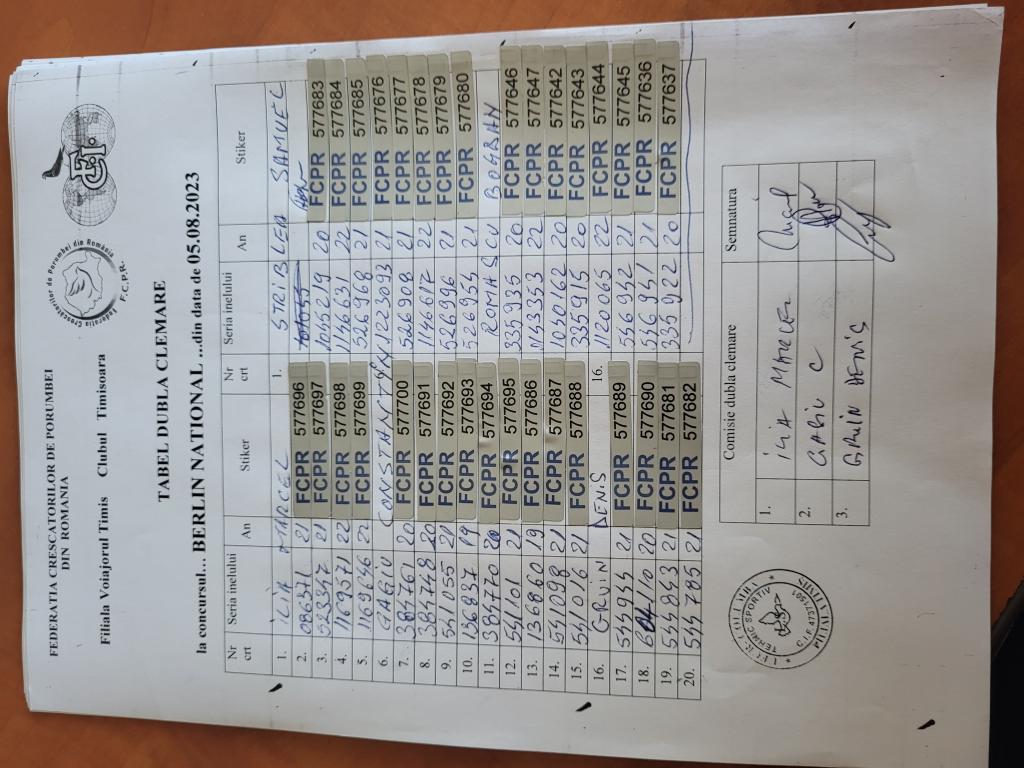 FEDERATIA CRESCATORILOR DE PORUMBEI
DIN ROMANIA
Filiala Voiajorul Timis Clubul Timisoara
Federatia Crescatorilor de Porumbei din România
F.C.P.R.
TABEL DUBLA CLEMARE
la concursul... BERLIN NATIONAL ...din data de 05.08.2023
Nr crt Seria inelului An Stiker Nr crt Seria inelului An Stiker
1. ILIA MARCEL 1. STRIBLEA SAMUEL
2. 086371 21 FCPR 577696
3. 523347 21 FCPR 577697 1045219 20 FCPR 577683
4. 1169571 22 FCPR 577698 1146631 22 FCPR 577684
5. 1169646 22 FCPR 577699 526968 21 FCPR 577685
6. GAGIU CONSTANTIN 1223093 21 FCPR 577676
7. 384761 20 FCPR 577700 526908 21 FCPR 577677
8. 384748 20 FCPR 577691 1146617 22 FCPR 577678
9. 541055 21 FCPR 577692 526996 21 FCPR 577679
10. 136837 19 FCPR 577693 526954 21 FCPR 577680
11. 384770 20 FCPR 577694 ROMASCU BOGDAN
12. 541101 21 FCPR 577695 335935 20 FCPR 577646
13. 136860 19 FCPR 577686 1143353 22 FCPR 577647
14. 541098 21 FCPR 577687 1050162 20 FCPR 577642
15. 541016 21 FCPR 577688 335915 20 FCPR 577643
16. GRUIN DENIS 16. 1120065 22 FCPR 577644
17. 544944 21 FCPR 577689 556942 21 FCPR 577645
18. 20 FCPR 577690 556941 21 FCPR 577636
19. 544843 21 FCPR 577681 335922 20 FCPR 577637
20. 544785 21 FCPR 577682
Comisie dubla clemare Semnatura
1. ILIA MARCEL
2. GAGIU C
3. GRUIN DENIS
TEHNIC SPORTIV